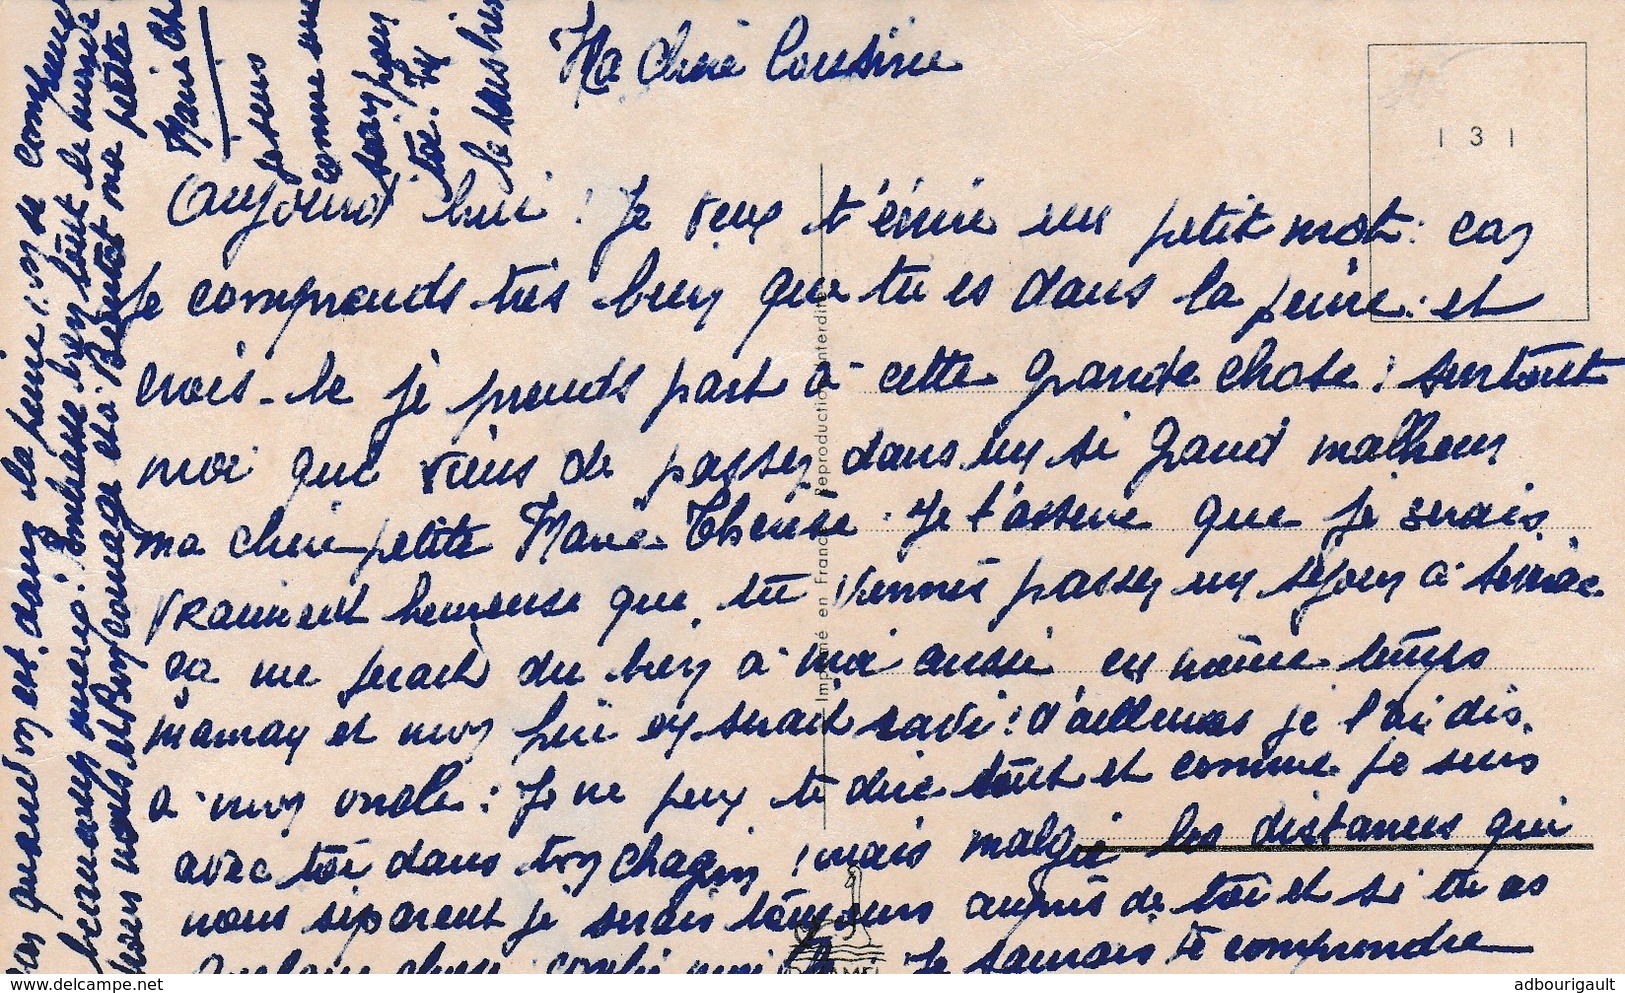 Ma chère Cousine
Aujourd'hui ! Je veux t'écrire un petit mot : car
Je comprends très bien que tu es dans la peine : et
crois-le je prends part à cette grande chose : surtout
moi que viens de passer dans un si grand malheur
ma chère petite Marie-Thérèse. Je t'assure que je serais
vraiment heureuse que tu viennes passer un séjour à
ça me ferait du bien à moi aussi en même temps
maman et mon père en serait ravi ! d'ailleurs je l'ai dis
à mon oncle : Je ne peux te dire tout et comme je suis
avec toi dans ton chagrin ! mais malgré les distances qui
nous séparent je serais toujours auprès de toi et si tu as
quelque chose moi le : Je saurais te comprendre
car quand on est dans la peine on se comprend
beaucoup mieux : embrasse bien tout le monde
nous et Bon courage et à Bientôt ma petite
Marie
je suis
comme une
toi
le
1 3 1
Imprimé en France Reproduction interdite
adbourigault